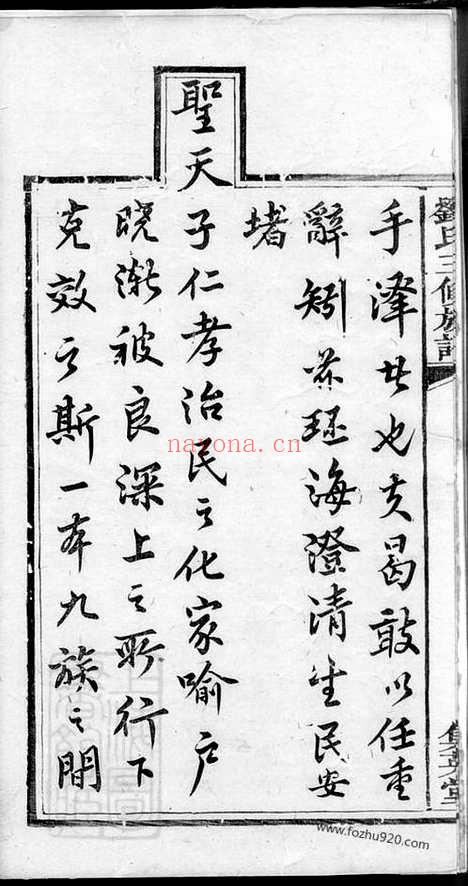 手澤廿也夫曷敢以任重
辭矧茲環海澄清生民安
堵
聖天子仁孝治民之化家喻户
曉漸被良深上之所行下
克效之斯一本九族之間
劉氏三修族譜
nayona.cn
www.fozhu920.com